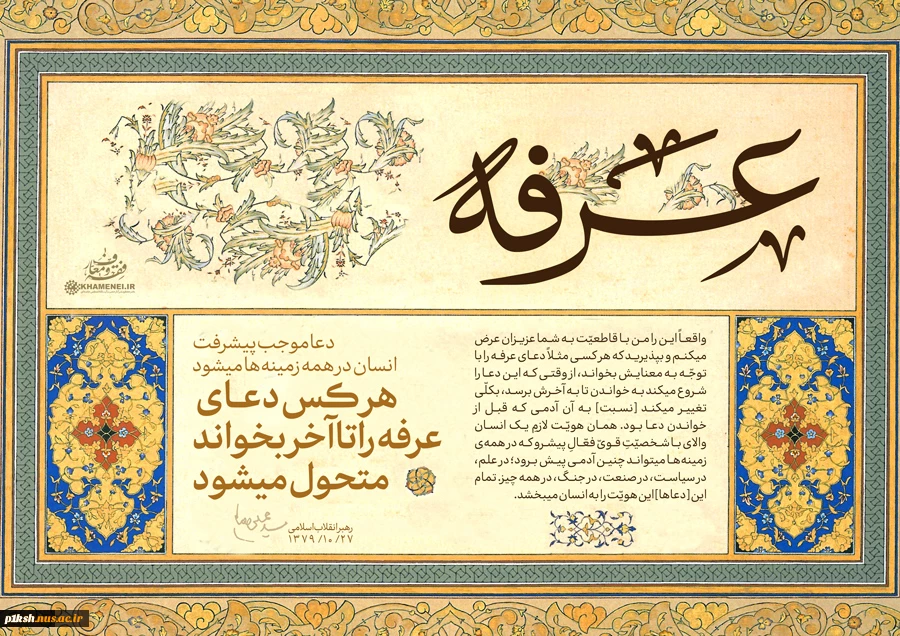 عرفه
فقه و معارف
KHAMENEI.IR
دعا موجب پیشرفت
انسان در همه زمینه‌ها میشود
هر کس دعای
عرفه را تا آخر بخواند
متحول میشود
رهبر انقلاب اسلامی
۱۳۷۹/۱۰/۲۷
واقعاً این را من با قاطعیّت به شما عزیزان عرض
میکنم و بپذیرید که هر کسی مثلاً دعای عرفه را با
توجّه به معنایش بخواند، از وقتی که این دعا را
شروع میکند به خواندن تا به آخرش برسد، بکلّی
تغییر میکند [نسبت] به آن آدمی که قبل از
خواندن دعا بود. همان هویّت لازمِ یک انسان
والای با شخصیّتِ قویّ فعّالِ پیشرو که در همه‌ی
زمینه‌ها میتواند چنین آدمی پیش برود؛ در علم،
در سیاست، در صنعت، در جنگ، در همه چیز. تمام
این [دعاها] این هویّت را به انسان میبخشد.
p1ksh.nus.ac.ir